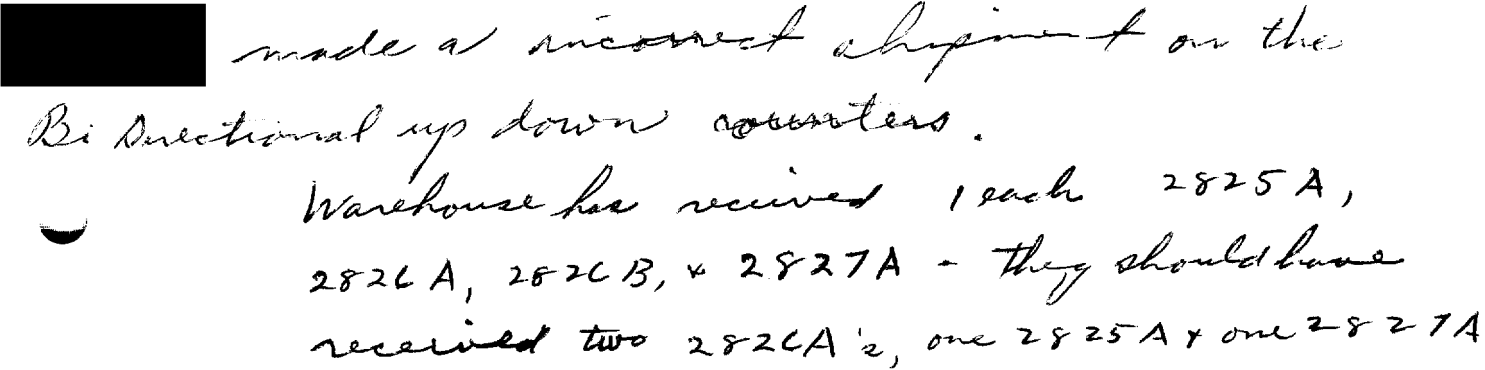 made a incorrect shipment on the
Bi Directional up down counters.
Warehouse has received 1 each 2825A,
2826A, 2826B, & 2827A - they should have
received two 2826A's, one 2825A & one 2827A